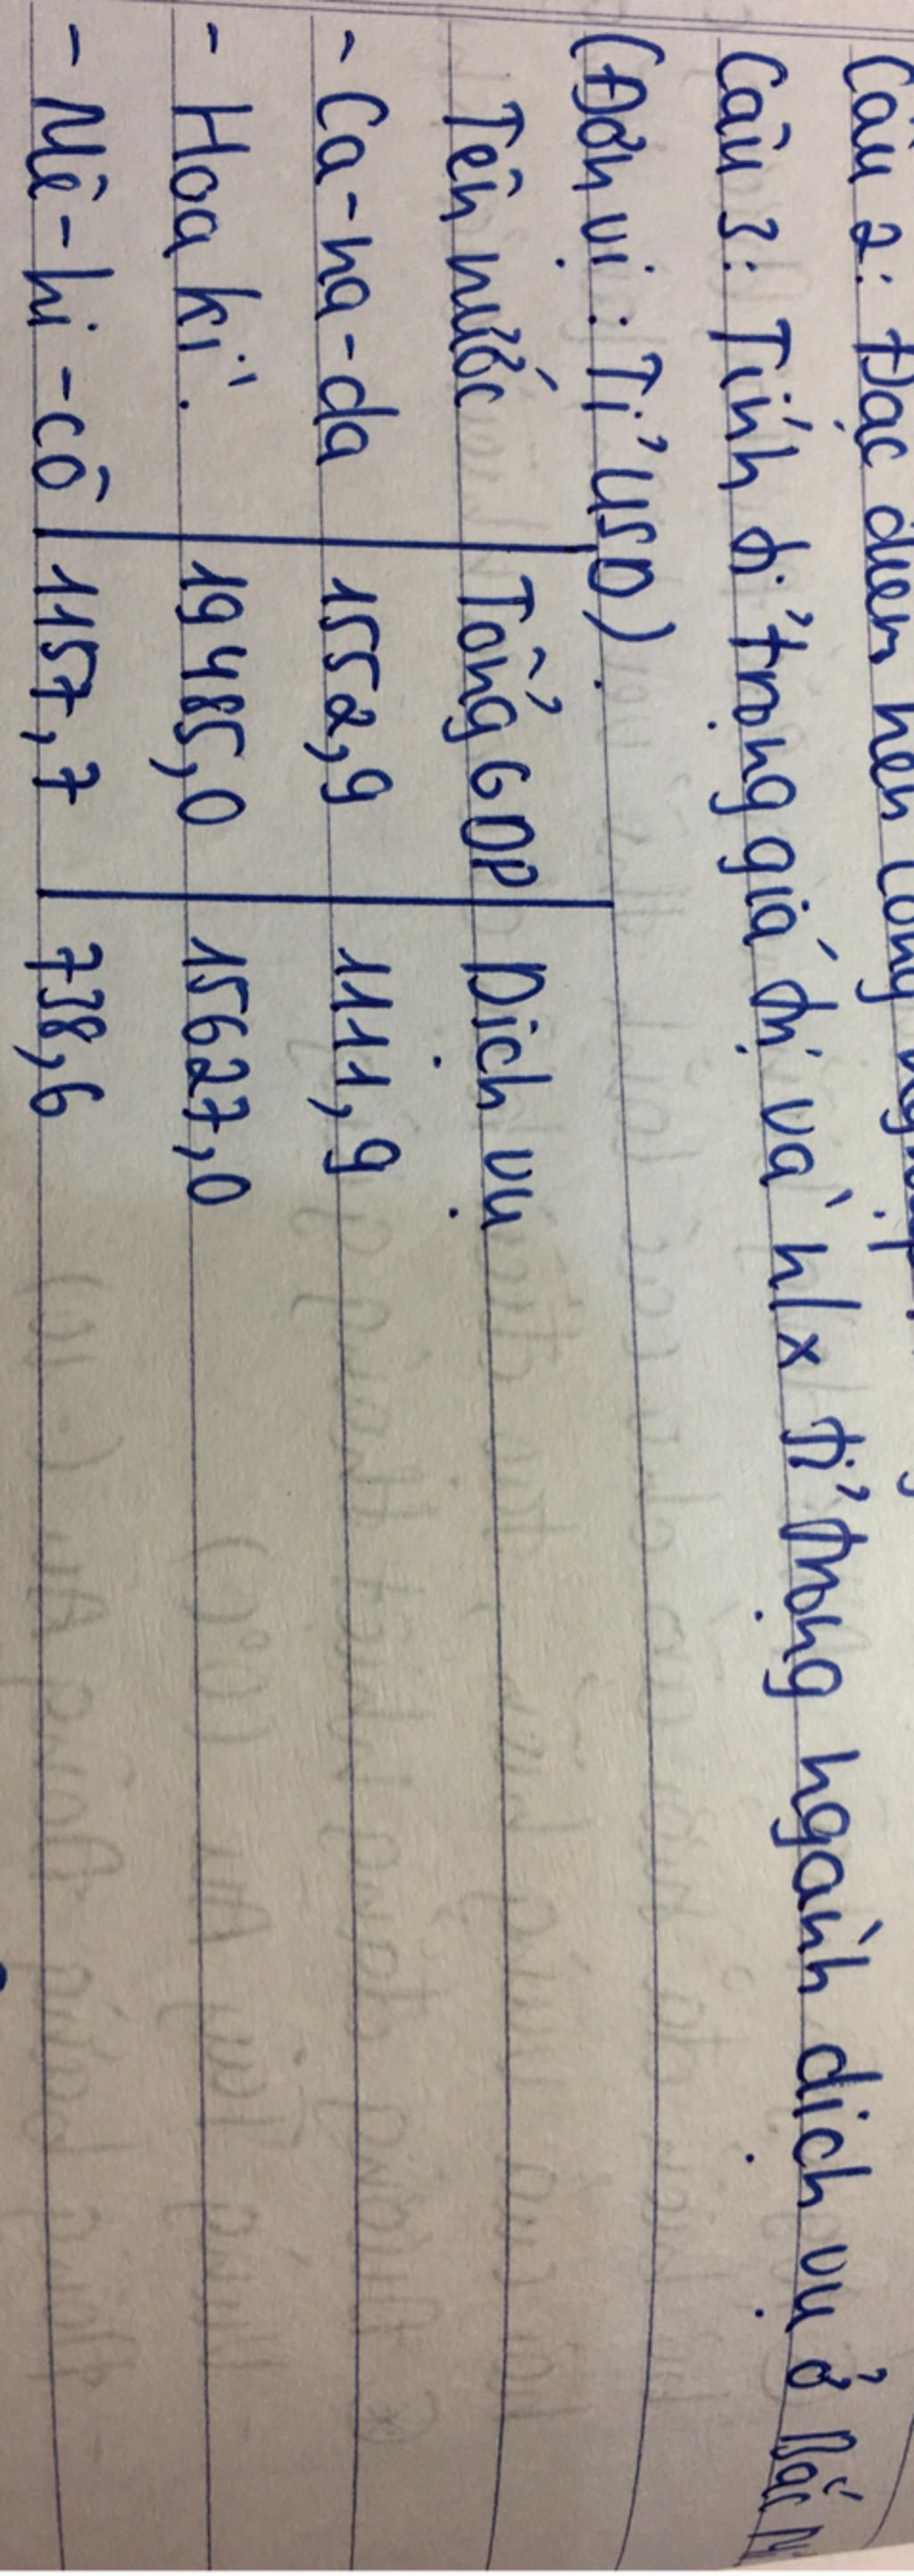 Câu 2: Đặc điểm nền công
Câu 3: Tính tỉ trọng giá trị và n/x tỉ trọng ngành dịch vụ ở Bắc
(Đơn vị: Tỉ USD).
Tên nước Tổng GDP Dịch vụ
- Ca-na-da 1552,9 1111,9
- Hoa kì. 19485,0 15627,0
- Mê-hi-cô 1157,7 738,6